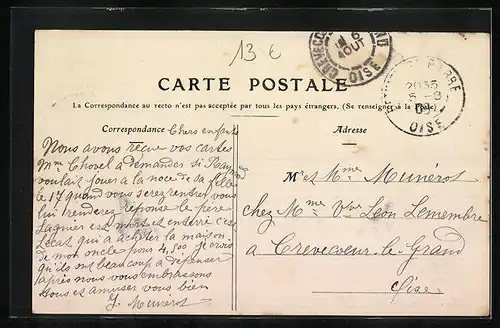 13 €
CREVECOEUR
6
AOUT
OISE
20 35
5 - 8
OISE
CARTE POSTALE
La Correspondance au recto n'est pas acceptée par tous les pays étrangers. (Se renseigner à la Poste)
Correspondance
Chers enfants
Nous avons reçue vos cartes
Mme Chovel a demander si
voulait jouer a la noce de sa fille
le 17 quand vous serez rentrer vous
lui renderez réponse le père
Lagnier est mort et enterré c'est
Locat qui a acheter la maison
de mon oncle pour 4,500 je crois
qu'ils ont beaucoup a dépenser
après nous vous embrassons
tous et amuser vous bien
J. Munérot
Adresse
M et Mme Munérot
chez Mme Vve Léon Lemembre
a Crevecoeur-le-Grand
Oise